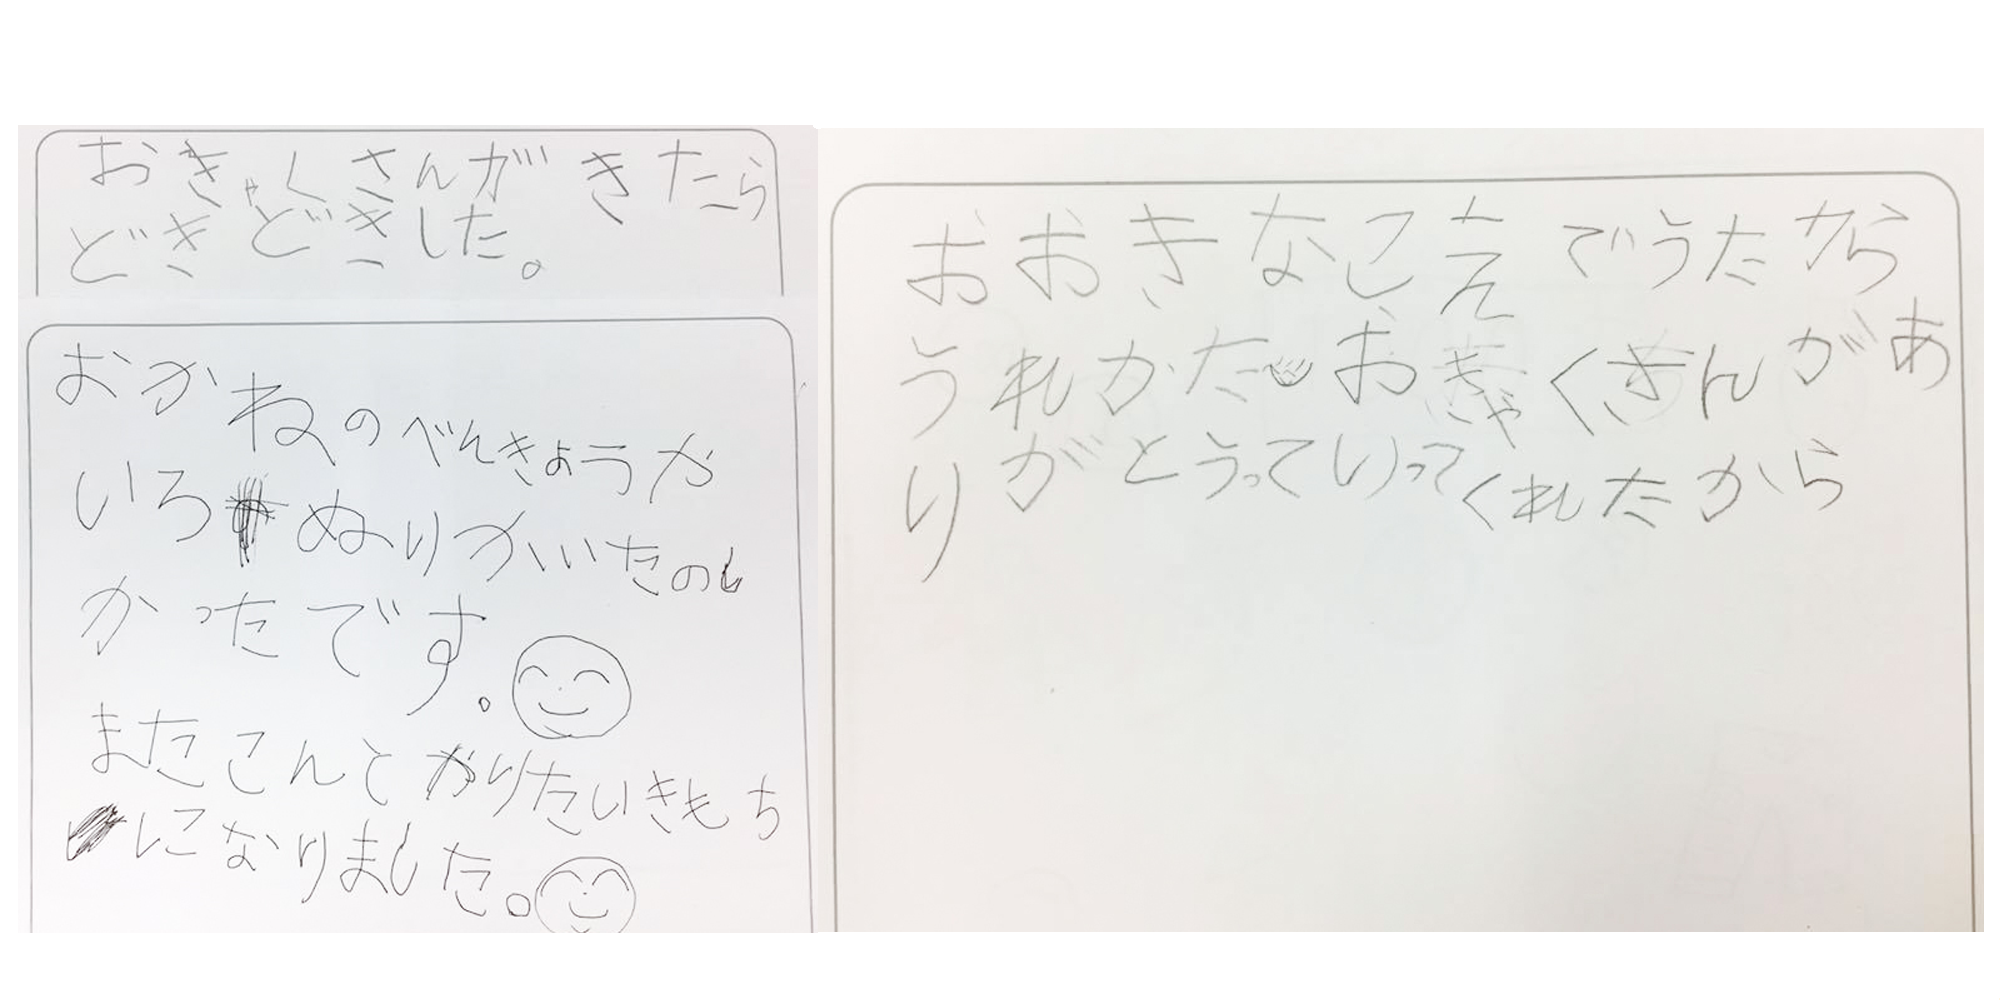 おきゃくさんがきたら
どきどきした。
おかねのべんきょうや
いろぬりかいたのし
かったです。
またこんどやりたいきもち
になりました。
おおきなこえでうたから
うれかた おきゃくさんがあ
りがとうっていってくれたから